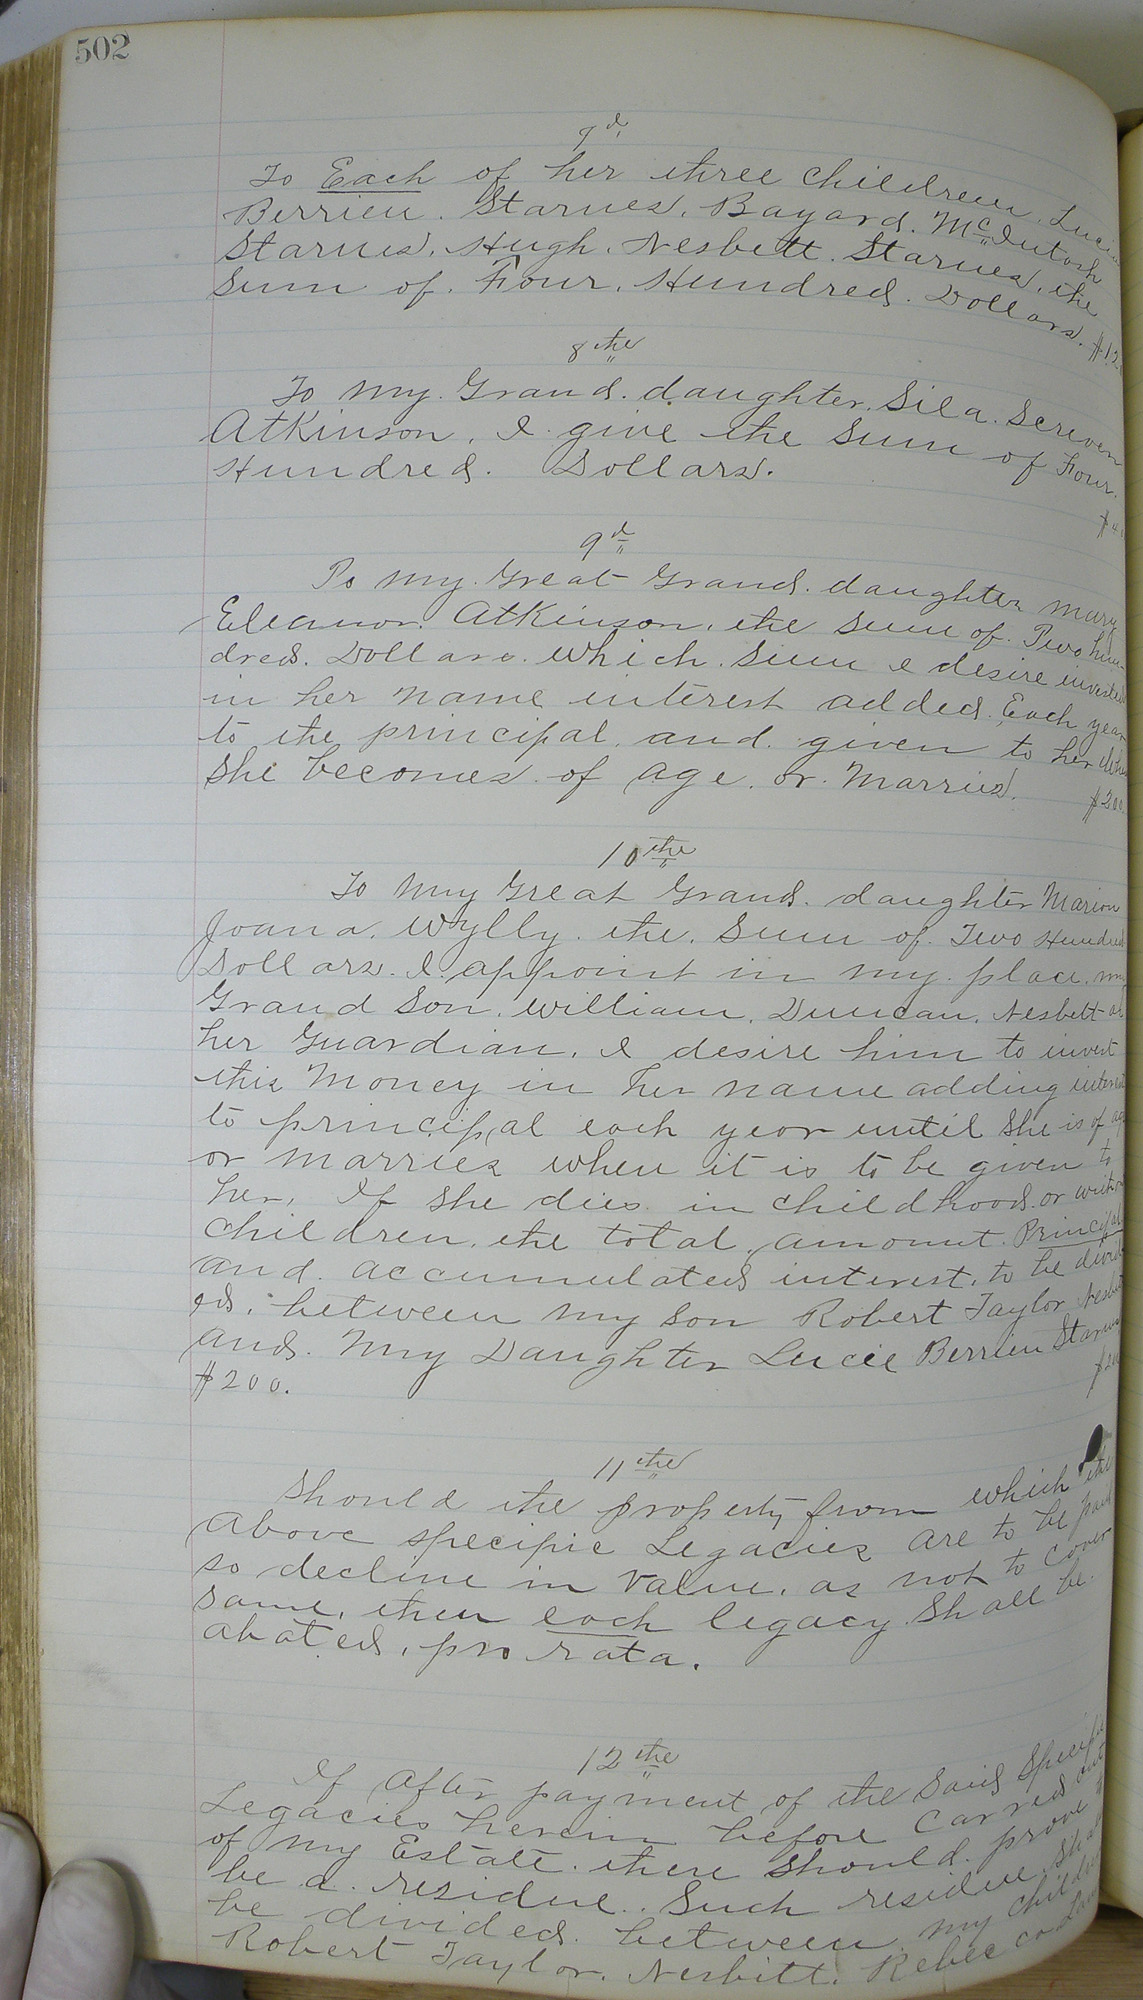 502
7d
To Each of her three children, Lucie
Berrien. Starnes, Bayard. McIntosh
Starnes, Hugh. Nesbett. Starnes, the
Sum of. Four. Hundred. Dollars. $12
8the
To my. Grand. daughter. Sila. Screven
Atkinson, I give the Sum of Four.
Hundred. Dollars.
$4
9d
To my Great Grand. daughter Mary
Eleanor Atkinson, the Sum of. Two hun-
dred. Dollars. which. Sum I desire invested
in her name interest added. Each year
to the principal. and. given to her
She becomes of age. or. Married.
$200.
10the
To my Great Grand. daughter Marion
Joana. Wylly. the. Sum of. Two Hundred
Dollars. I appoint in my place. my
Grand Son. William. Duncan. Nesbett as
her Guardian. I desire him to invest
this Money in her name adding interest
to principal each year until She is of age
or marries when it is to be given to
her, If She dies in childhood. or without
children. the total. amount. Principal
and. accumulated interest. to be divid-
ed. between my Son Robert Taylor Nesbitt
and. My Daughter Lucie Berrien Starnes
$200. $20
11the
Should the property from which the
above specific Legacies are to be paid
so decline in value. as not to cover
same, then each legacy Shall be.
abated, pro rata.
12the
If after payment of the Said Specific
Legacies herein before carried out
of my Estate. there Should. prove to
be a. residue. Such residue Shall
be divided. between my children
Robert Taylor. Nesbitt. Rebecca